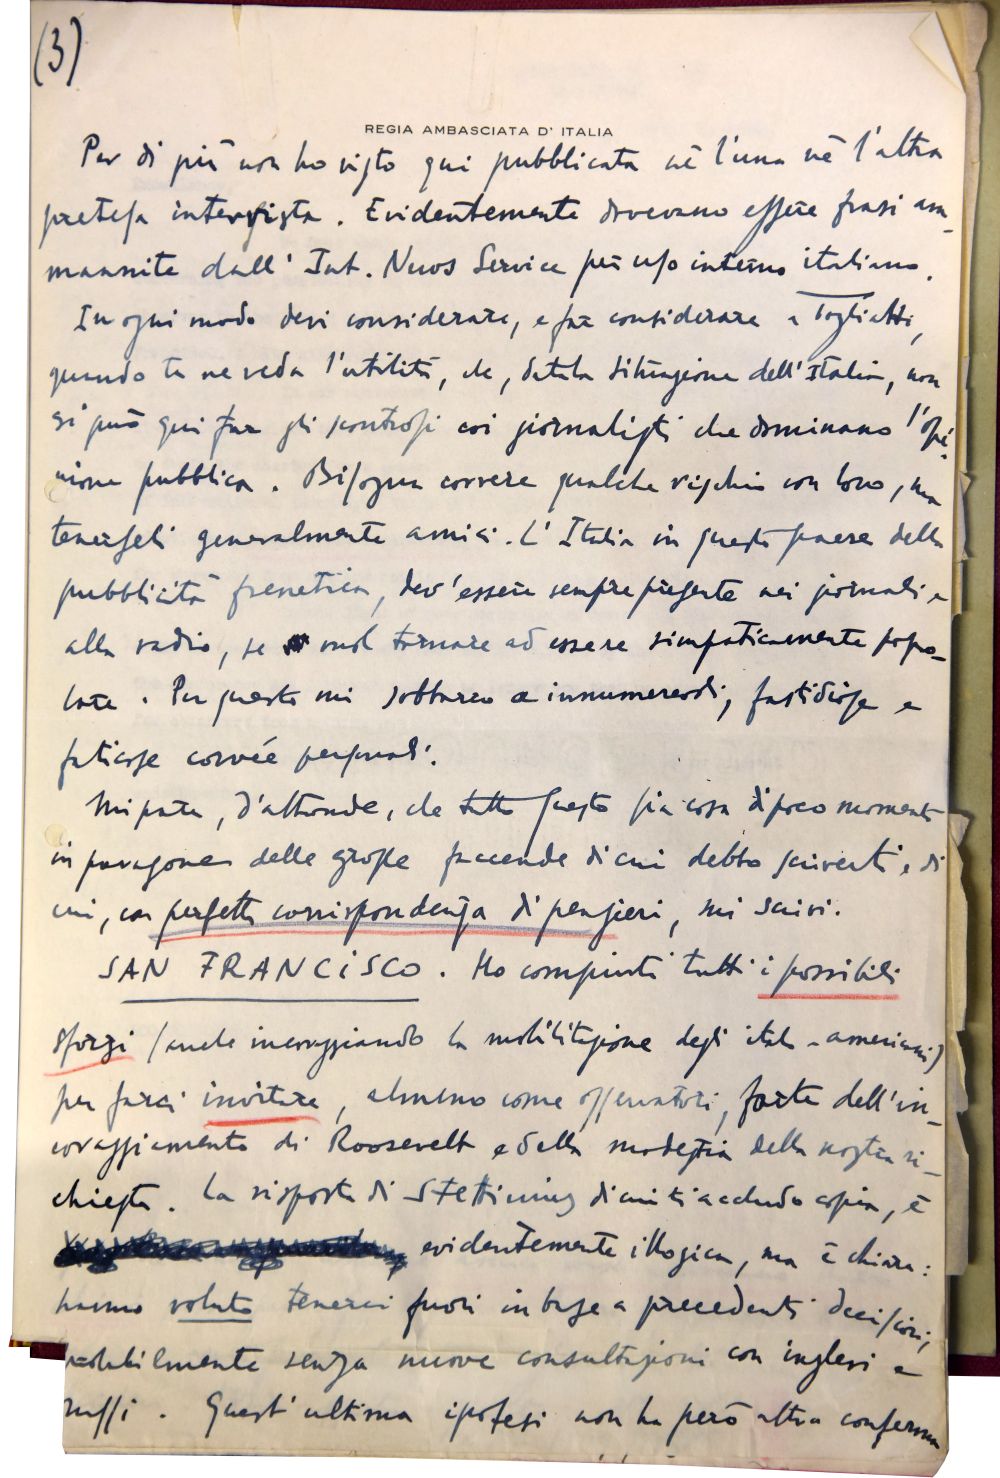 (3)
REGIA AMBASCIATA D'ITALIA
Per di più non ho visto qui pubblicata nè l'una nè l'altra
pretesa intervista. Evidentemente dovevano essere frasi am-
mannite dall'Int. News Service per uso interno italiano.
In ogni modo devi considerare, e far considerare a Togliatti,
quando tu ne veda l'utilità, che, data la situazione dell'Italia, non
si può qui far gli scontrosi coi giornalisti che dominano l'opi-
nione pubblica. Bisogna correre qualche rischio con loro, ma
tenerseli generalmente amici. L'Italia in questo paese della
pubblicità frenetica, dev'essere sempre presente nei giornali e
alla radio, se vuol tornare ad essere simpaticamente popo-
lare. Per questo mi sobbarco a innumerevoli, fastidiose e
faticose corvée personali.
Mi pare, d'altronde, che tutto questo sia cosa di poco momento
in paragone delle grosse faccende di cui debbo scriverti e di
cui, con perfetta corrispondenza di pensieri, mi scrivi.
SAN FRANCISCO. Ho compiuti tutti i possibili
sforzi (anche incoraggiando la mobilitazione degli italo-americani)
per farci invitare, almeno come osservatori, forte dell'in-
coraggiamento di Roosevelt e della modestia della nostra ri-
chiesta. La risposta di Stettinius di cui ti accludo copia, è
evidentemente illogica, ma è chiara:
hanno voluto tenerci fuori in base a precedenti decisioni,
probabilmente senza nuove consultazioni con inglesi e
russi. Quest'ultima ipotesi non ha però altra conferma